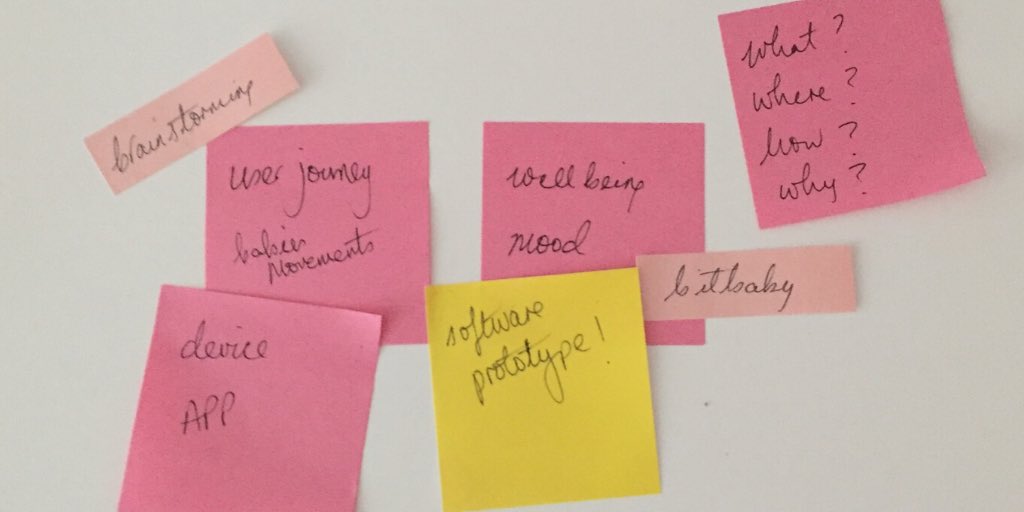 brainstorming
user journey
babies
movements
well being
mood
what?
where?
how?
why?
bitbaby
device
APP
software
prototype!